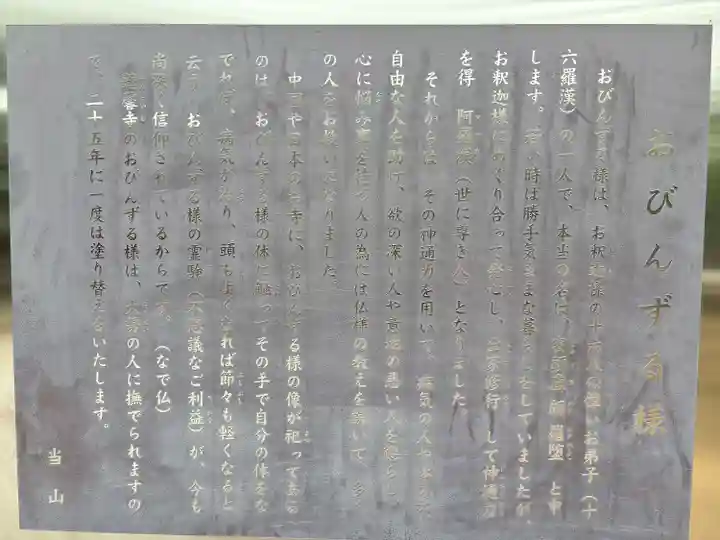 おびんずる様
おびんずる様は、お釈迦様の十六人の お弟子（十
六羅漢）の一人で、本当の名は、 と申
します。若い時は勝手気ままな暮しをしていましたが、
お釈迦様にめぐり合って 心し、 修行 して神通力
を得 阿羅漢（世に尊き人）となりました。
それからは その神通力を用いて、病気の人や
自由な人を助け、欲の深い人や意地の悪い人を
心に悩み事を持つ人の為には仏様の教えを説いて、多く
の人をお救いになりました。
中国や日本のお寺に、おびんずる様の像が祀って
のは、おびんずる様の体に触って その手で自分の体をな
でれば、病気が治り、頭もよくなれば節々も軽くなると
云う おびんずる様の霊験（不思議なご利益）が、今も
尚深く信仰されているからです。（なで仏）
寺のおびんずる様は、大勢の人に撫でられますの
で、二十五年に一度は塗り替えをいたします。
当山